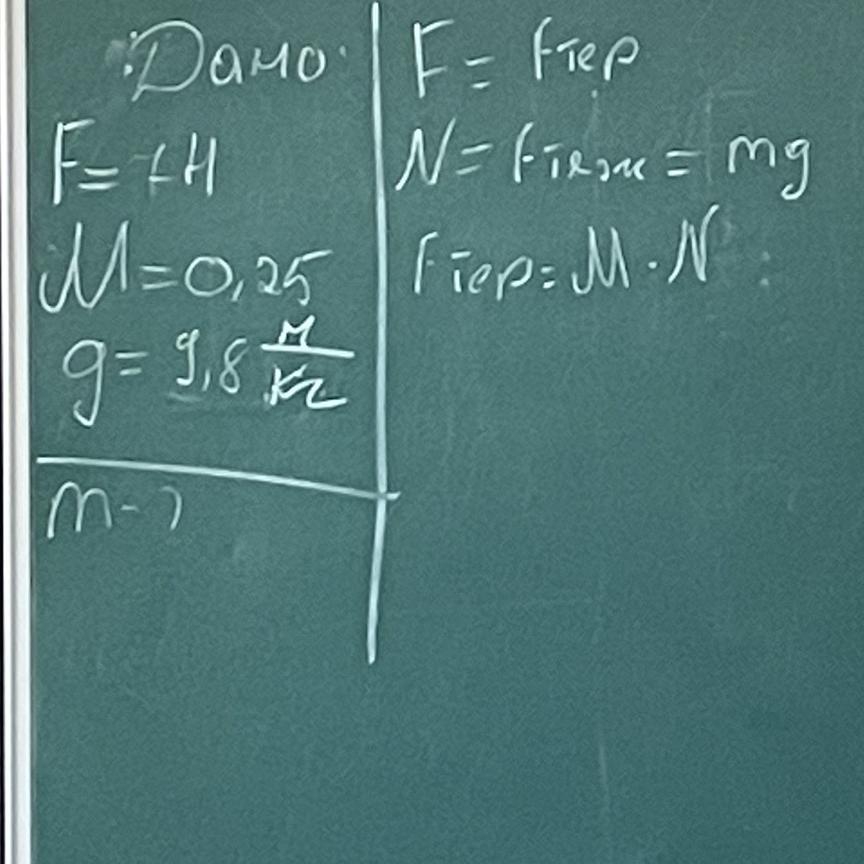 Дано:
F = 1 Н
μ = 0,25
g = 9,8 м/кг
m - ?
F = Fтер
N = Fтяж = mg
Fтер = μ · N